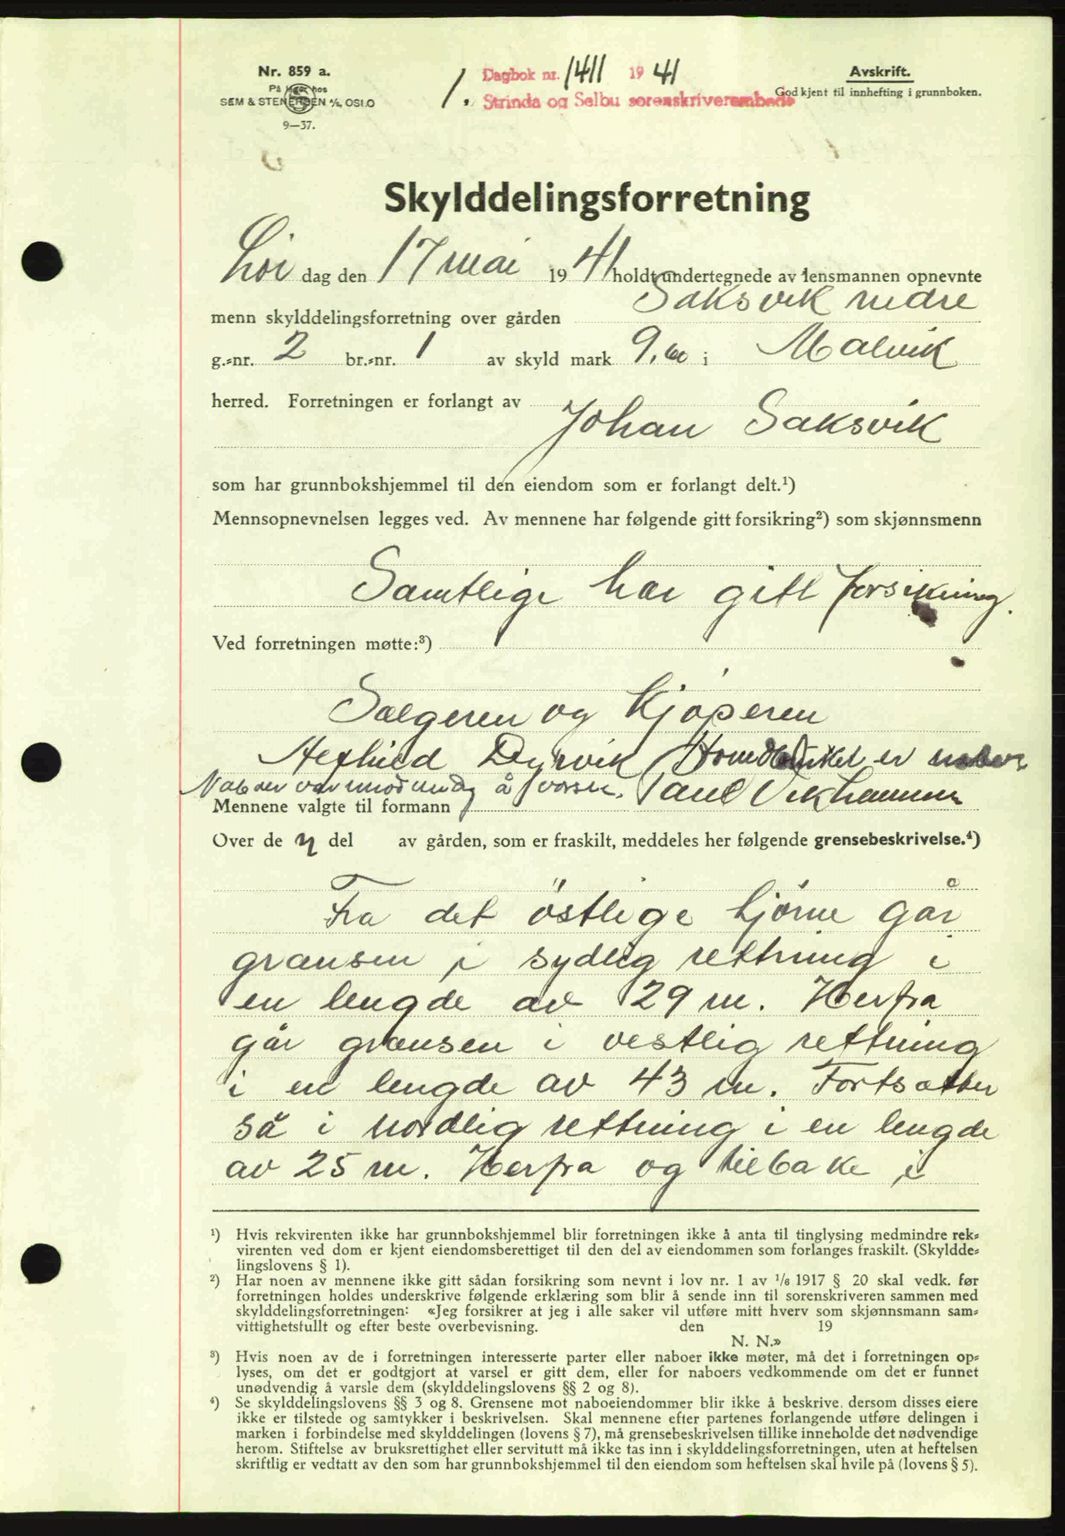 Nr. 859 a.
På lager hos
SEM & STENERSEN A/S, OSLO
9—37.
1. Dagbok nr. 1411 1941
Strinda og Selbu sorenskriverembede
Avskrift.
Godkjent til innhefting i grunnboken.
Skylddelingsforretning
Lør dag den 17 mai 1941 holdt undertegnede av lensmannen opnevnte
menn skylddelingsforretning over gården Saksvik nedre
g.-nr. 2 br.-nr. 1 av skyld mark 9,60 i Malvik
herred. Forretningen er forlangt av
Johan Saksvik
som har grunnbokshjemmel til den eiendom som er forlangt delt.¹)
Mennsopnevnelsen legges ved. Av mennene har følgende gitt forsikring²) som skjønnsmenn
Samtlige har gitt forsikring.
Ved forretningen møtte:³)
Sælgeren og kjøperen
Dyrvik er
Naboer var unødvendig å varsle.
Mennene valgte til formann Paul Vikhammer
Over de n del av gården, som er fraskilt, meddeles her følgende grensebeskrivelse.⁴)
Fra det østlige hjørne går
grænsen i sydlig rettning i
en lengde av 29 m. Herfra
går grænsen i vestlig rettning
i en lengde av 43 m. Fortsætter
så i nordlig rettning i en lengde
av 25 m. Herfra og tilbake i
¹) Hvis rekvirenten ikke har grunnbokshjemmel blir forretningen ikke å anta til tinglysing medmindre rek-
virenten ved dom er kjent eiendomsberettiget til den del av eiendommen som forlanges fraskilt. (Skyldde-
lingslovens § 1).
²) Har noen av mennene ikke gitt sådan forsikring som nevnt i lov nr. 1 av 1/6 1917 § 20 skal vedk. før
forretningen holdes underskrive følgende erklæring som blir å sende inn til sorenskriveren sammen med
skylddelingsforretningen: «Jeg forsikrer at jeg i alle saker vil utføre mitt hverv som skjønnsmann sam-
vittighetsfullt og efter beste overbevisning. den 19
N. N.»
³) Hvis noen av de i forretningen interesserte parter eller naboer ikke møter, må det i forretningen op-
lyses, om det er godtgjort at varsel er gitt dem, eller for naboers vedkommende om det er funnet
unødvendig å varsle dem (skylddelingslovens §§ 2 og 8).
⁴) Se skylddelingslovens §§ 3 og 8. Grensene mot naboeiendommer blir ikke å beskrive, dersom disses eiere
ikke er tilstede og samtykker i beskrivelsen. Skal mennene efter partenes forlangende utføre delingen i
marken i forbindelse med skylddelingen (lovens § 7), må grensebeskrivelsen tillike inneholde det nødvendige
herom. Stiftelse av bruksrettighet eller servitutt må ikke tas inn i skylddelingsforretningen, uten at heftelsen
skriftlig er vedtatt av den som har grunnbokshjemmel til den eiendom som heftelsen skal hvile på (lovens § 5).